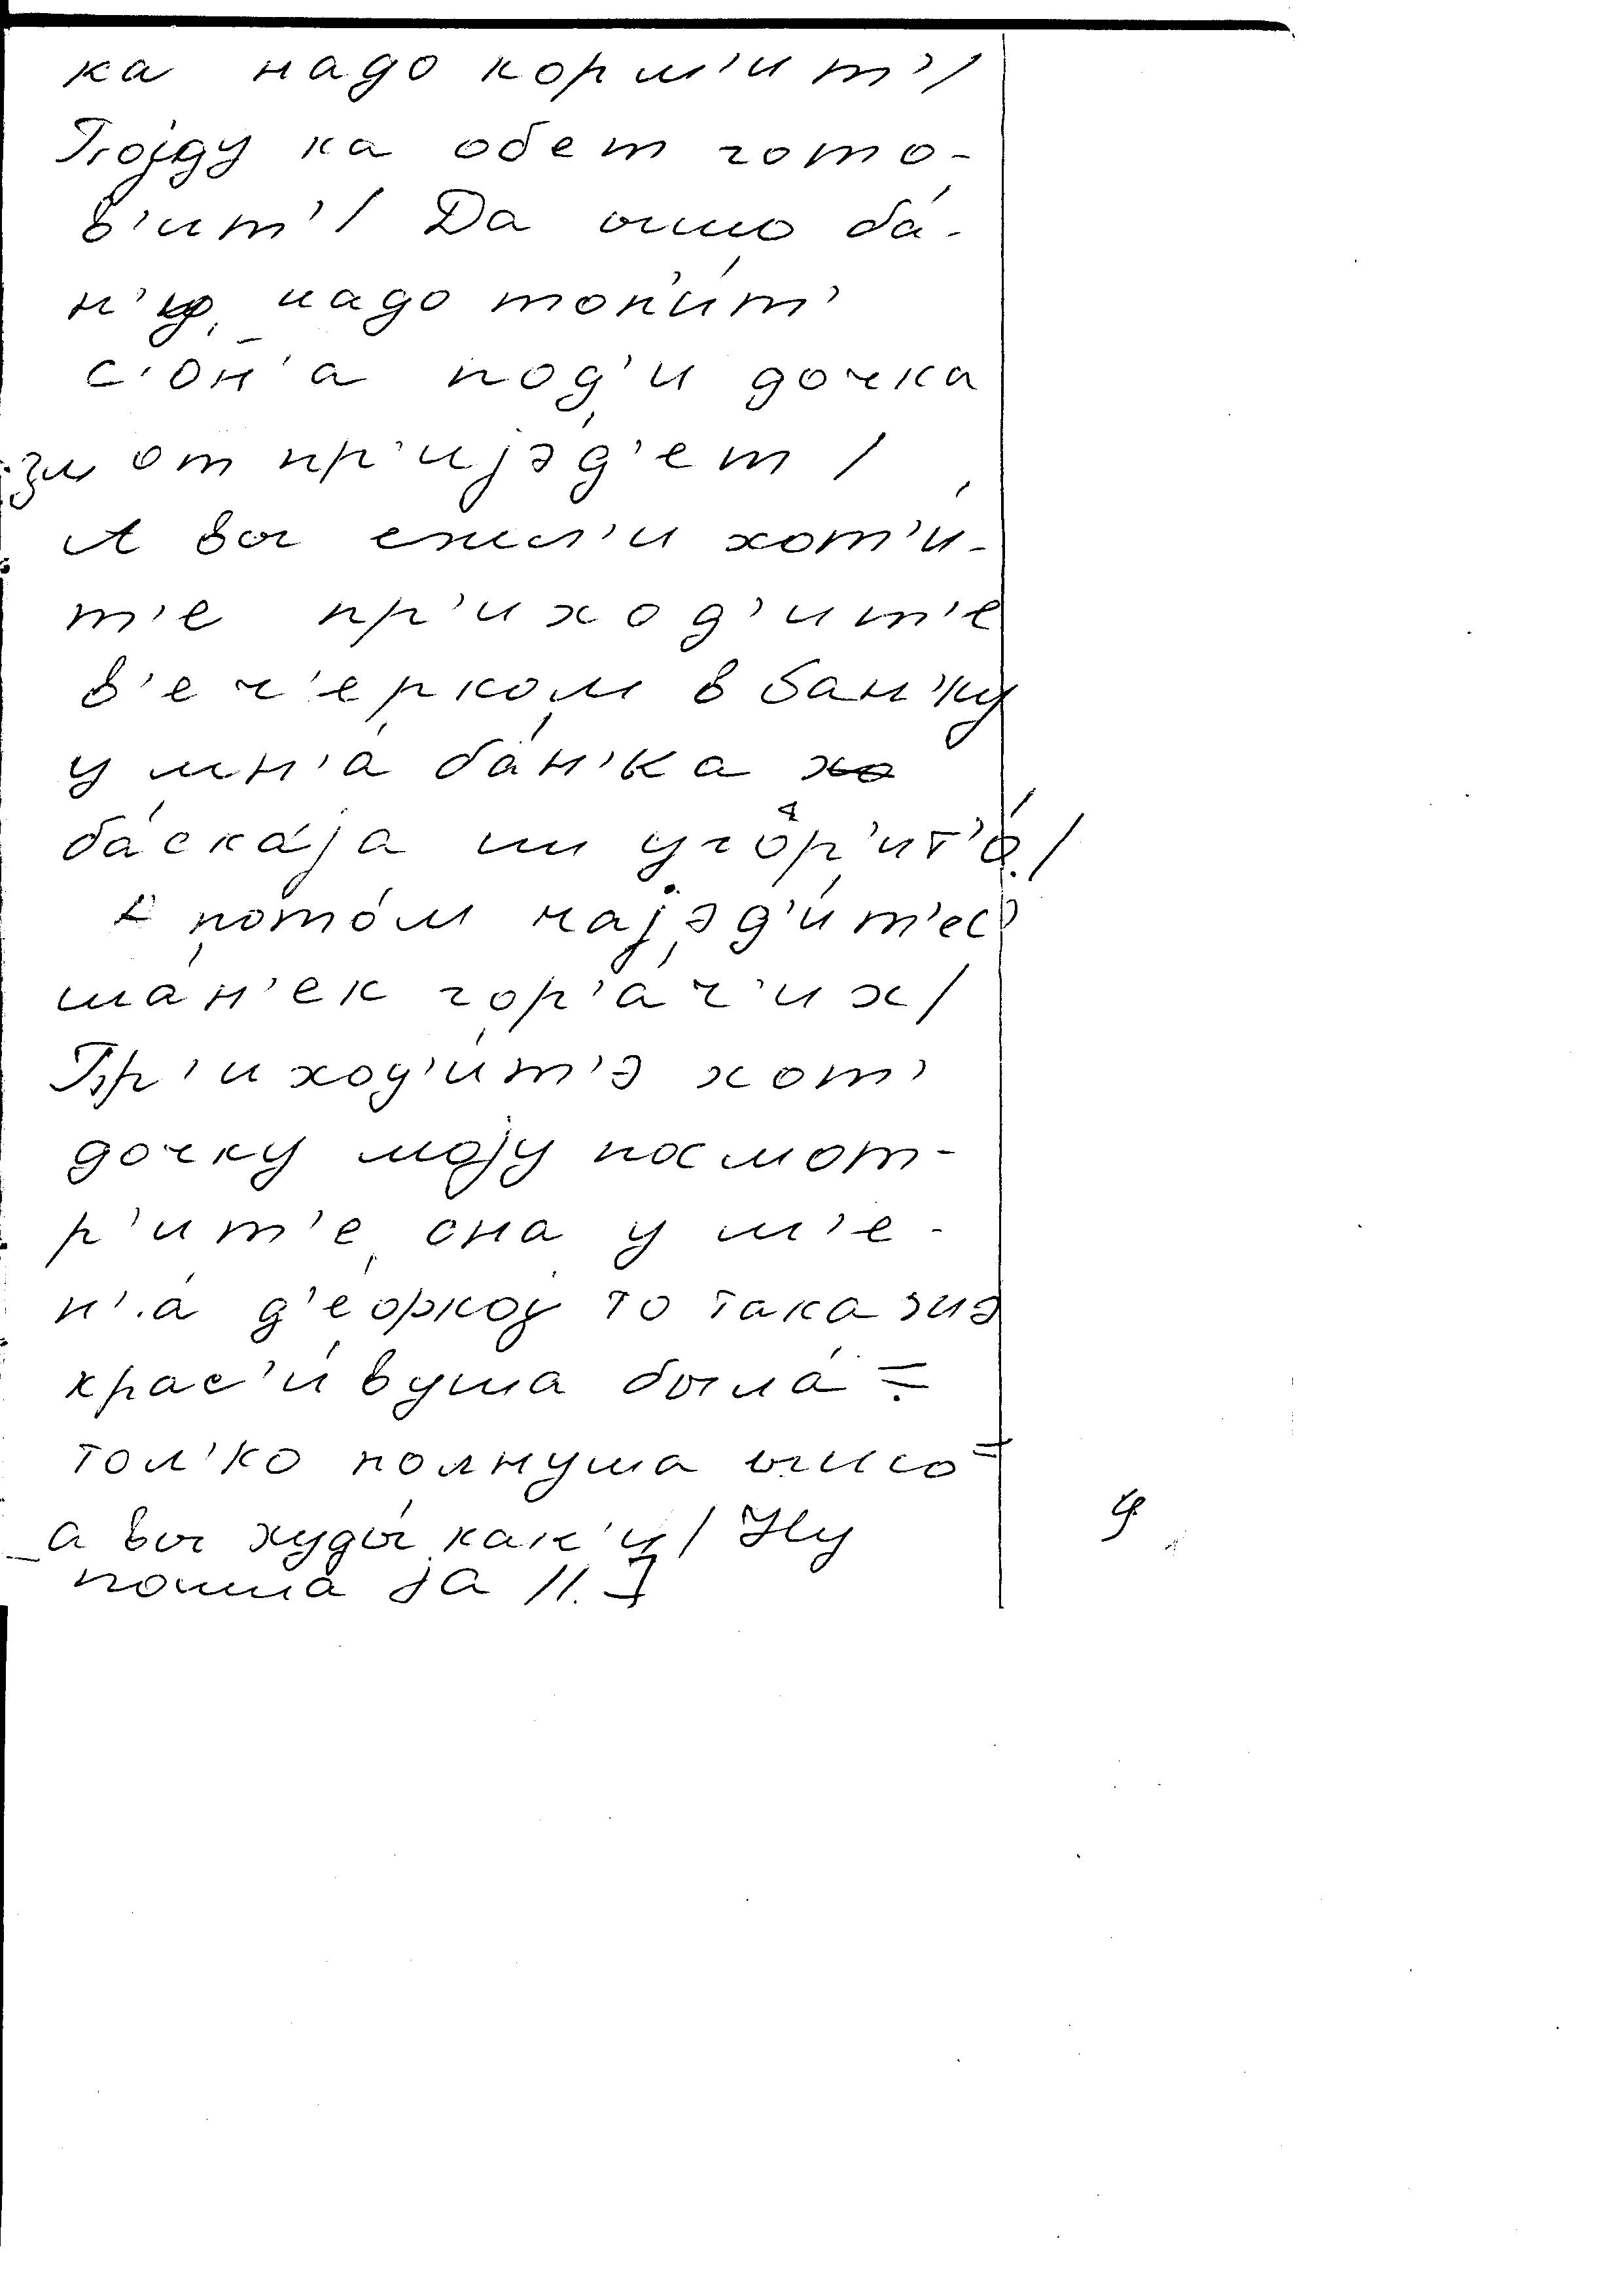 ка надо корм'ит'/
Пojду ка обет гото-
в'ит'/ Да ышшо бá-
н'у надо топ'ит'
с'óн'а под'и дочка
от пр'иjэд'ет /
А вы ежл'и хот'и-
т'е пр'иход'ит'е
в'еч'ерком в бан'ку
у мн'á бáн'ка
бáскája ни угор'ит'о/
А потóм наjэд'ит'ес'
шáн'ек гор'áч'их/
Пр'иход'ит'э хот'
дочку моjу посмот-
р'ит'е она у м'е-
н'á д'еокоj то така
крас'и́вуша былá
тол'ко полнуша ышшо
а вы худы́ как'и/ Ну
пошлá ja //.]